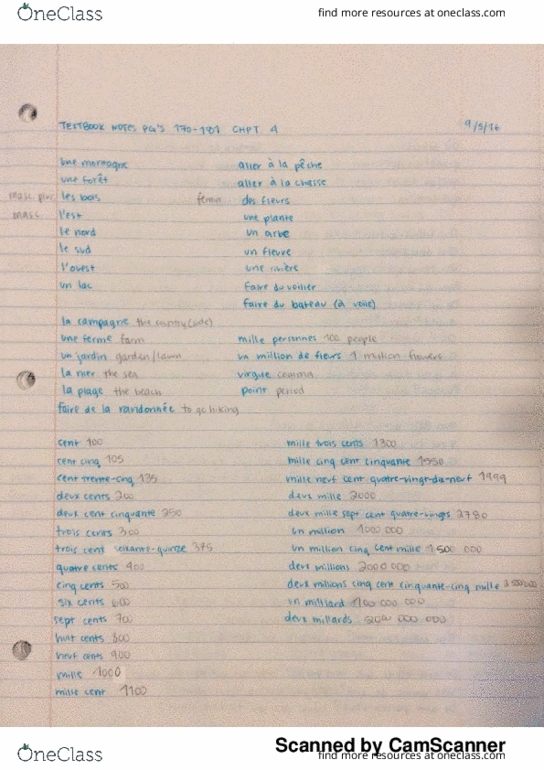 OneClass find more resources at oneclass.com
TEXTBOOK NOTES PG'S 170-181 CHPT 4 9/5/16
une montagne aller à la pêche
une forêt aller à la chasse
masc plur les bois femin des fleurs
masc l'est une plante
le nord un arbre
le sud un fleuve
l'ouest une rivière
un lac faire du voilier
faire du bateau (à voile)
la campagne the country(side)
une ferme farm mille personnes 100 people
un jardin garden/lawn un million de fleurs 1 million flowers
la mer the sea virgule comma
la plage the beach point period
faire de la randonnée to go hiking
cent 100 mille trois cents 1300
cent cinq 105 mille cinq cent cinquante 1550
cent trente-cinq 135 mille neuf cent quatre-vingt-dix-neuf 1999
deux cents 200 deux mille 2000
deux cent cinquante 250 deux mille sept cent quatre-vingts 2780
trois cents 300 un million 1000 000
trois cent soixante-quinze 375 un million cinq cent mille 1 500 000
quatre cents 400 deux millions 2000 000
cinq cents 500 deux millions cinq cent cinquante-cinq mille
six cents 600 un milliard
sept cents 700 deux millards
huit cents 800
neuf cents 900
mille 1000
mille cent 1100
Scanned by CamScanner
OneClass find more resources at oneclass.com